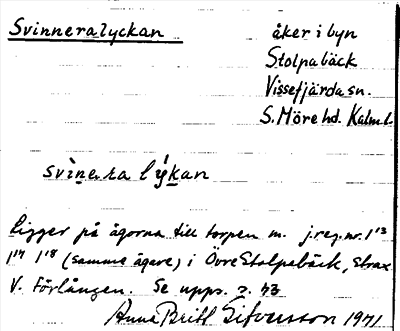 Svinneralyckan
åker i byn
Stolpabäck
Vissefjärda sn.
S. Möre hd. Kalm. l.
svìnera lýkan
Ligger på ägorna till torpen m. j.reg.nr. 1¹³
1¹⁷ 1¹⁸ (samma ägare) i Övre Stolpabäck, strax
V. Förlången. Se upps. s. 73
Anna Britt Sifversson 1971